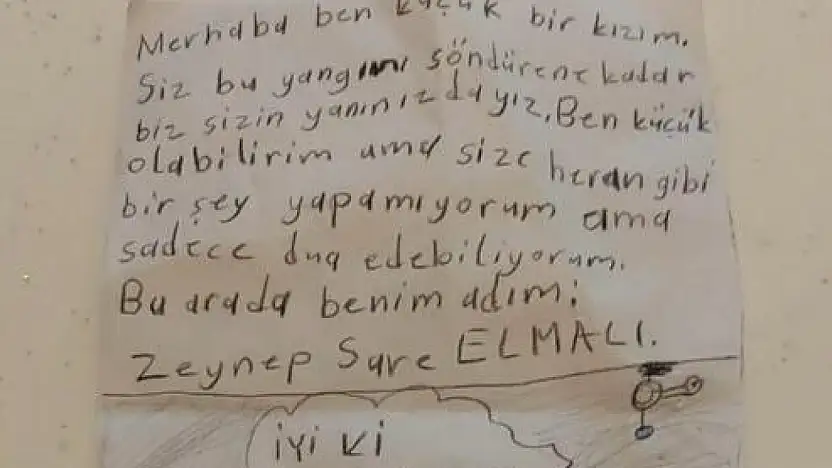 Merhaba ben küçük bir kızım.
Siz bu yangını söndürene kadar
biz sizin yanınızdayız. Ben küçük
olabilirim ama size heran gibi
bir şey yapamıyorum ama
sadece dua edebiliyorum.
Bu arada benim adım:
Zeynep Sare ELMALI.
iyi ki